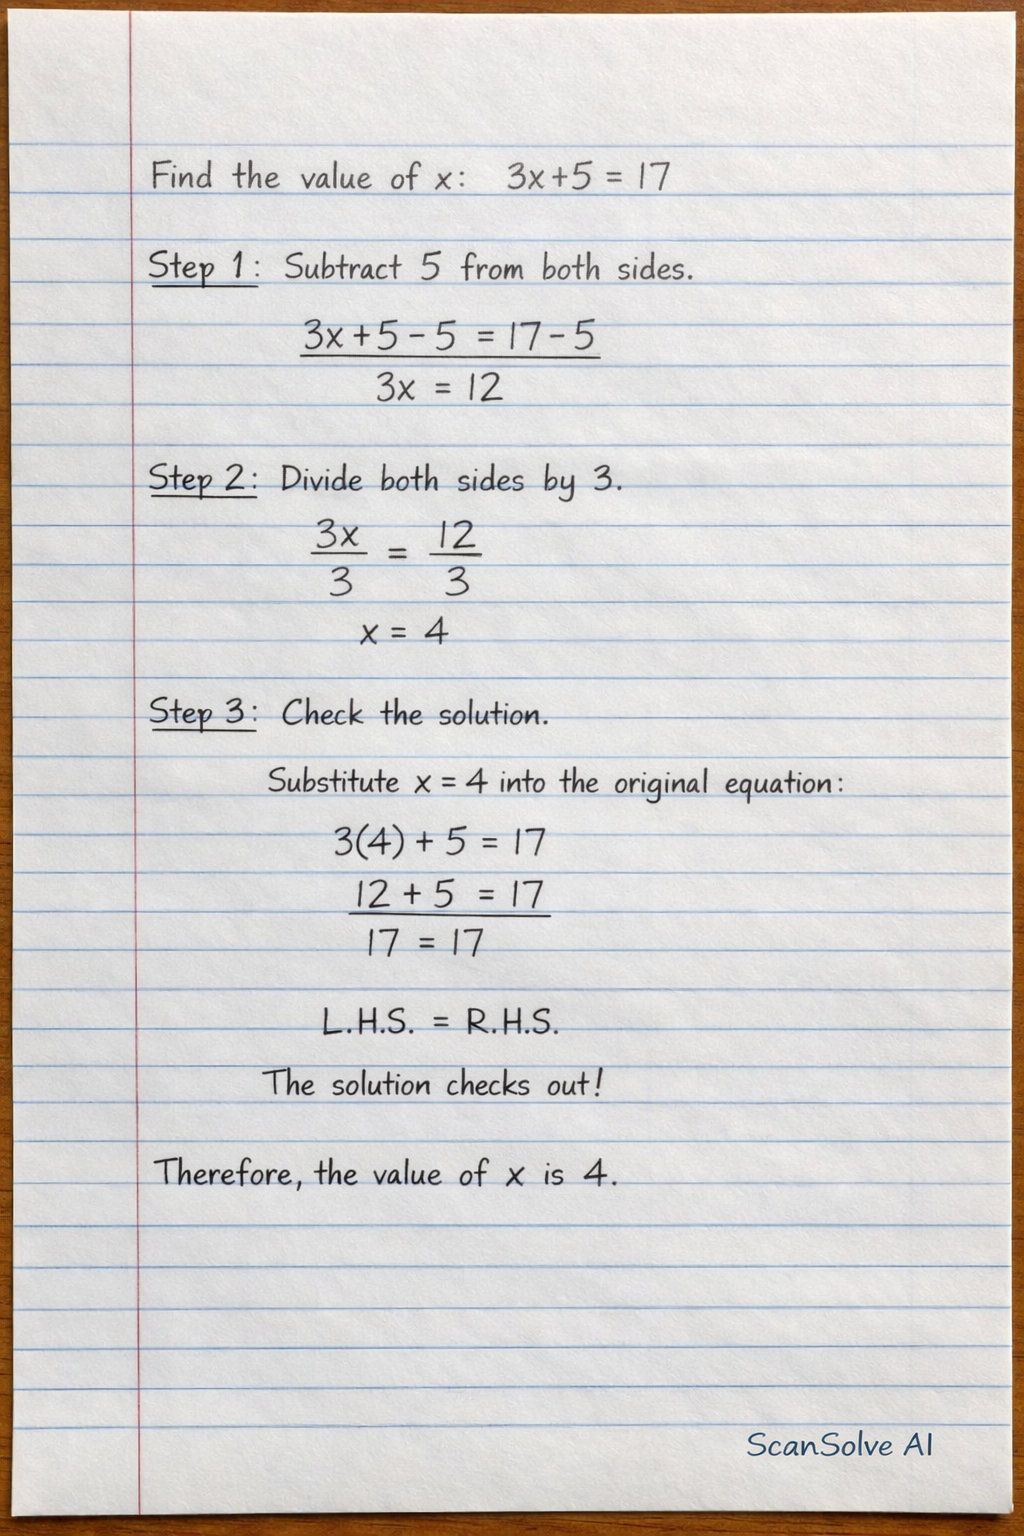 Find the value of x: 3x+5 = 17
Step 1: Subtract 5 from both sides.
3x+5-5 = 17-5
3x = 12
Step 2: Divide both sides by 3.
3x/3 = 12/3
x = 4
Step 3: Check the solution.
Substitute x = 4 into the original equation:
3(4) + 5 = 17
12 + 5 = 17
17 = 17
L.H.S. = R.H.S.
The solution checks out!
Therefore, the value of x is 4.
ScanSolve AI